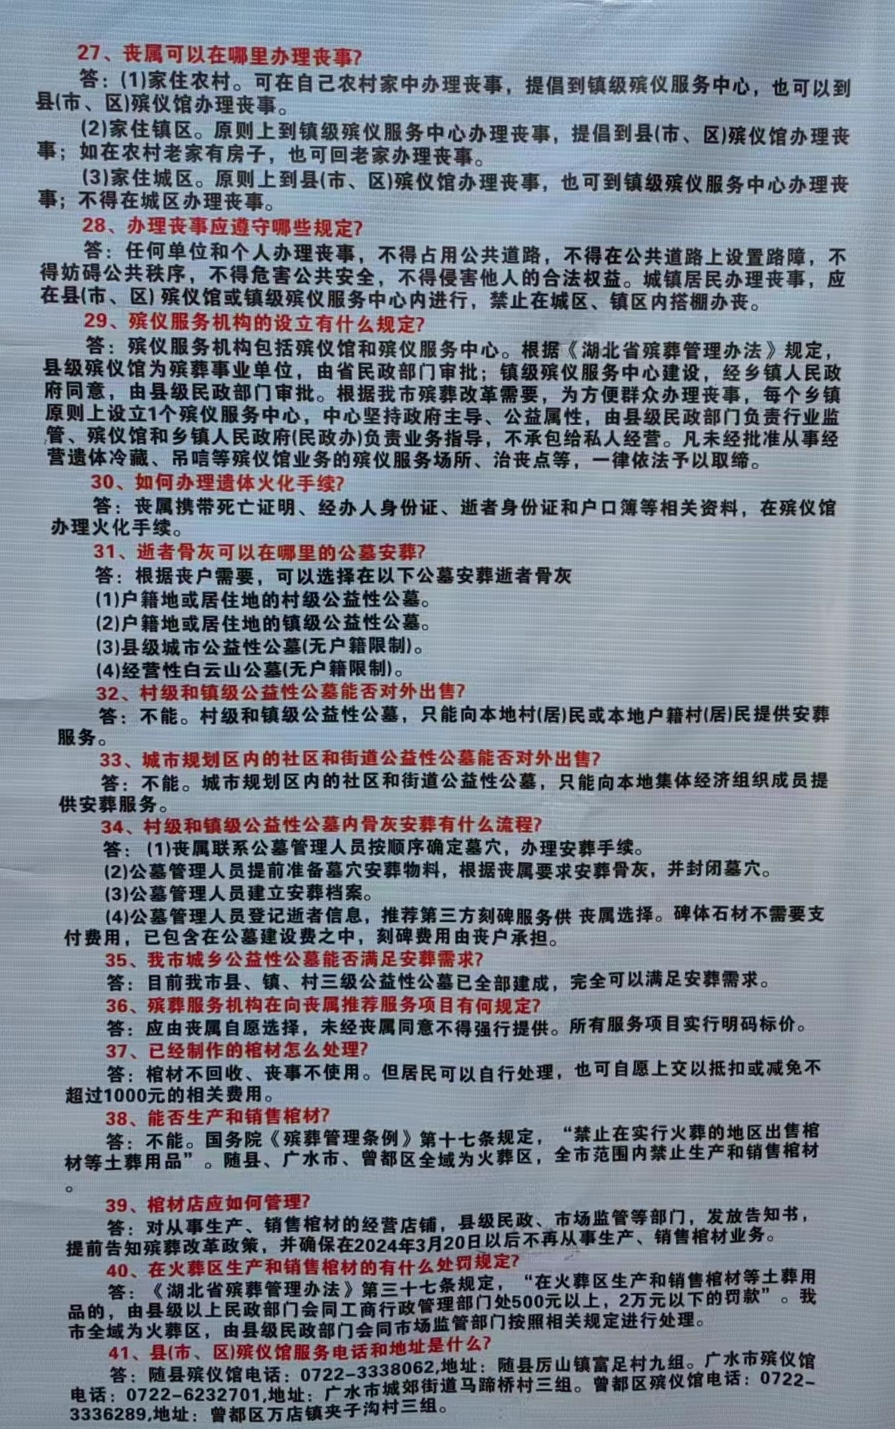 27、丧属可以在哪里办理丧事?
答：(1)家住农村。可在自己农村家中办理丧事，提倡到镇级殡仪服务中心，也可以到
县(市、区)殡仪馆办理丧事。
(2)家住镇区。原则上到镇级殡仪服务中心办理丧事，提倡到县(市、区)殡仪馆办理丧
事；如在农村老家有房子，也可回老家办理丧事。
(3)家住城区。原则上到县(市、区)殡仪馆办理丧事，也可到镇级殡仪服务中心办理丧
事；不得在城区办理丧事。
28、办理丧事应遵守哪些规定?
答：任何单位和个人办理丧事，不得占用公共道路，不得在公共道路上设置路障，不
得妨碍公共秩序，不得危害公共安全，不得侵害他人的合法权益。城镇居民办理丧事，应
在县(市、区) 殡仪馆或镇级殡仪服务中心内进行，禁止在城区、镇区内搭棚办丧。
29、殡仪服务机构的设立有什么规定?
答：殡仪服务机构包括殡仪馆和殡仪服务中心。根据《湖北省殡葬管理办法》规定，
县级殡仪馆为殡葬事业单位，由省民政部门审批；镇级殡仪服务中心建设，经乡镇人民政
府同意，由县级民政部门审批。根据我市殡葬改革需要，为方便群众办理丧事，每个乡镇
原则上设立1个殡仪服务中心，中心坚持政府主导、公益属性，由县级民政部门负责行业监
管、殡仪馆和乡镇人民政府(民政办)负责业务指导，不承包给私人经营。凡未经批准从事经
营遗体冷藏、吊唁等殡仪馆业务的殡仪服务场所、治丧点等，一律依法予以取缔。
30、如何办理遗体火化手续?
答：丧属携带死亡证明、经办人身份证、逝者身份证和户口簿等相关资料，在殡仪馆
办理火化手续。
31、逝者骨灰可以在哪里的公墓安葬?
答：根据丧户需要，可以选择在以下公墓安葬逝者骨灰
(1)户籍地或居住地的村级公益性公墓。
(2)户籍地或居住地的镇级公益性公墓。
(3)县级城市公益性公墓(无户籍限制)。
(4)经营性白云山公墓(无户籍限制)。
32、村级和镇级公益性公墓能否对外出售?
答：不能。村级和镇级公益性公墓，只能向本地村(居)民或本地户籍村(居)民提供安葬
服务。
33、城市规划区内的社区和街道公益性公墓能否对外出售?
答：不能。城市规划区内的社区和街道公益性公墓，只能向本地集体经济组织成员提
供安葬服务。
34、村级和镇级公益性公墓内骨灰安葬有什么流程?
答：(1)丧属联系公墓管理人员按顺序确定墓穴，办理安葬手续。
(2)公墓管理人员提前准备墓穴安葬物料，根据丧属要求安葬骨灰，并封闭墓穴。
(3)公墓管理人员建立安葬档案。
(4)公墓管理人员登记逝者信息，推荐第三方刻碑服务供 丧属选择。碑体石材不需要支
付费用，已包含在公墓建设费之中，刻碑费用由丧户承担。
35、我市城乡公益性公墓能否满足安葬需求?
答：目前我市县、镇、村三级公益性公墓已全部建成，完全可以满足安葬需求。
36、殡葬服务机构在向丧属推荐服务项目有何规定?
答：应由丧属自愿选择，未经丧属同意不得强行提供。所有服务项目实行明码标价。
37、已经制作的棺材怎么处理?
答：棺材不回收、丧事不使用。但居民可以自行处理，也可自愿上交以抵扣或减免不
超过1000元的相关费用。
38、能否生产和销售棺材?
答：不能。国务院《殡葬管理条例》第十七条规定，“禁止在实行火葬的地区出售棺
材等土葬用品”。随县、广水市、曾都区全域为火葬区，全市范围内禁止生产和销售棺材
。
39、棺材店应如何管理?
答：对从事生产、销售棺材的经营店铺，县级民政、市场监管等部门，发放告知书，
提前告知殡葬改革政策，并确保在2024年3月20日以后不再从事生产、销售棺材业务。
40、在火葬区生产和销售棺材的有什么处罚规定?
答：《湖北省殡葬管理办法》第三十七条规定，“在火葬区生产和销售棺材等土葬用
品的，由县级以上民政部门会同工商行政管理部门处500元以上，2万元以下的罚款”。我
市全域为火葬区，由县级民政部门会同市场监管部门按照相关规定进行处理。
41、县(市、区)殡仪馆服务电话和地址是什么?
答：随县殡仪馆电话：0722-3338062,地址：随县厉山镇富足村九组。广水市殡仪馆
电话：0722-6232701,地址：广水市城郊街道马蹄桥村三组。曾都区殡仪馆电话：0722-
3336289,地址：曾都区万店镇夹子沟村三组。